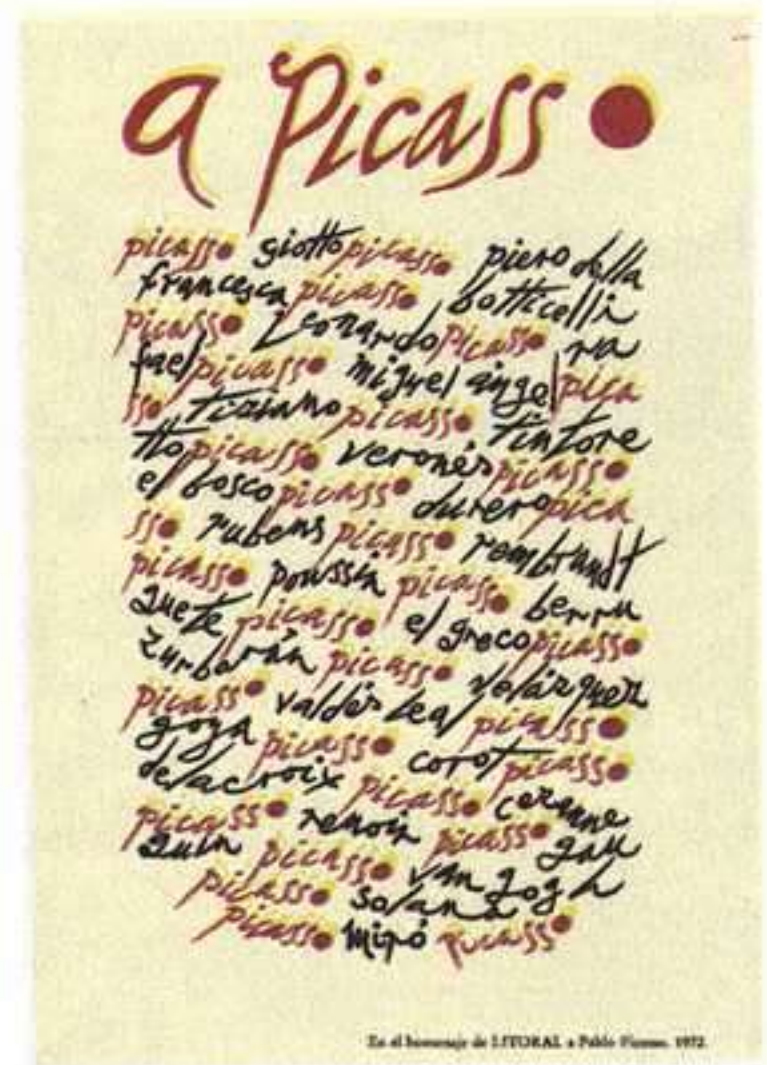 a Picasso
picasso giotto picasso piero della
francesca picasso botticelli
picasso Leonardo picasso ra
fael picasso miguel angel pica
sso tiziano picasso tintore
tto picasso veronés picasso
el bosco picasso durero pica
sso rubens picasso rembrandt
picasso poussin picasso berru
guete picasso el greco picasso
zurbarán picasso velázquez
picasso valdés leal picasso
goya picasso corot picasso
delacroix picasso cezanne
picasso renoir picasso gau
guin picasso van gogh
picasso solana
picasso miró picasso
En el homenaje de LITORAL a Pablo Picasso. 1972.